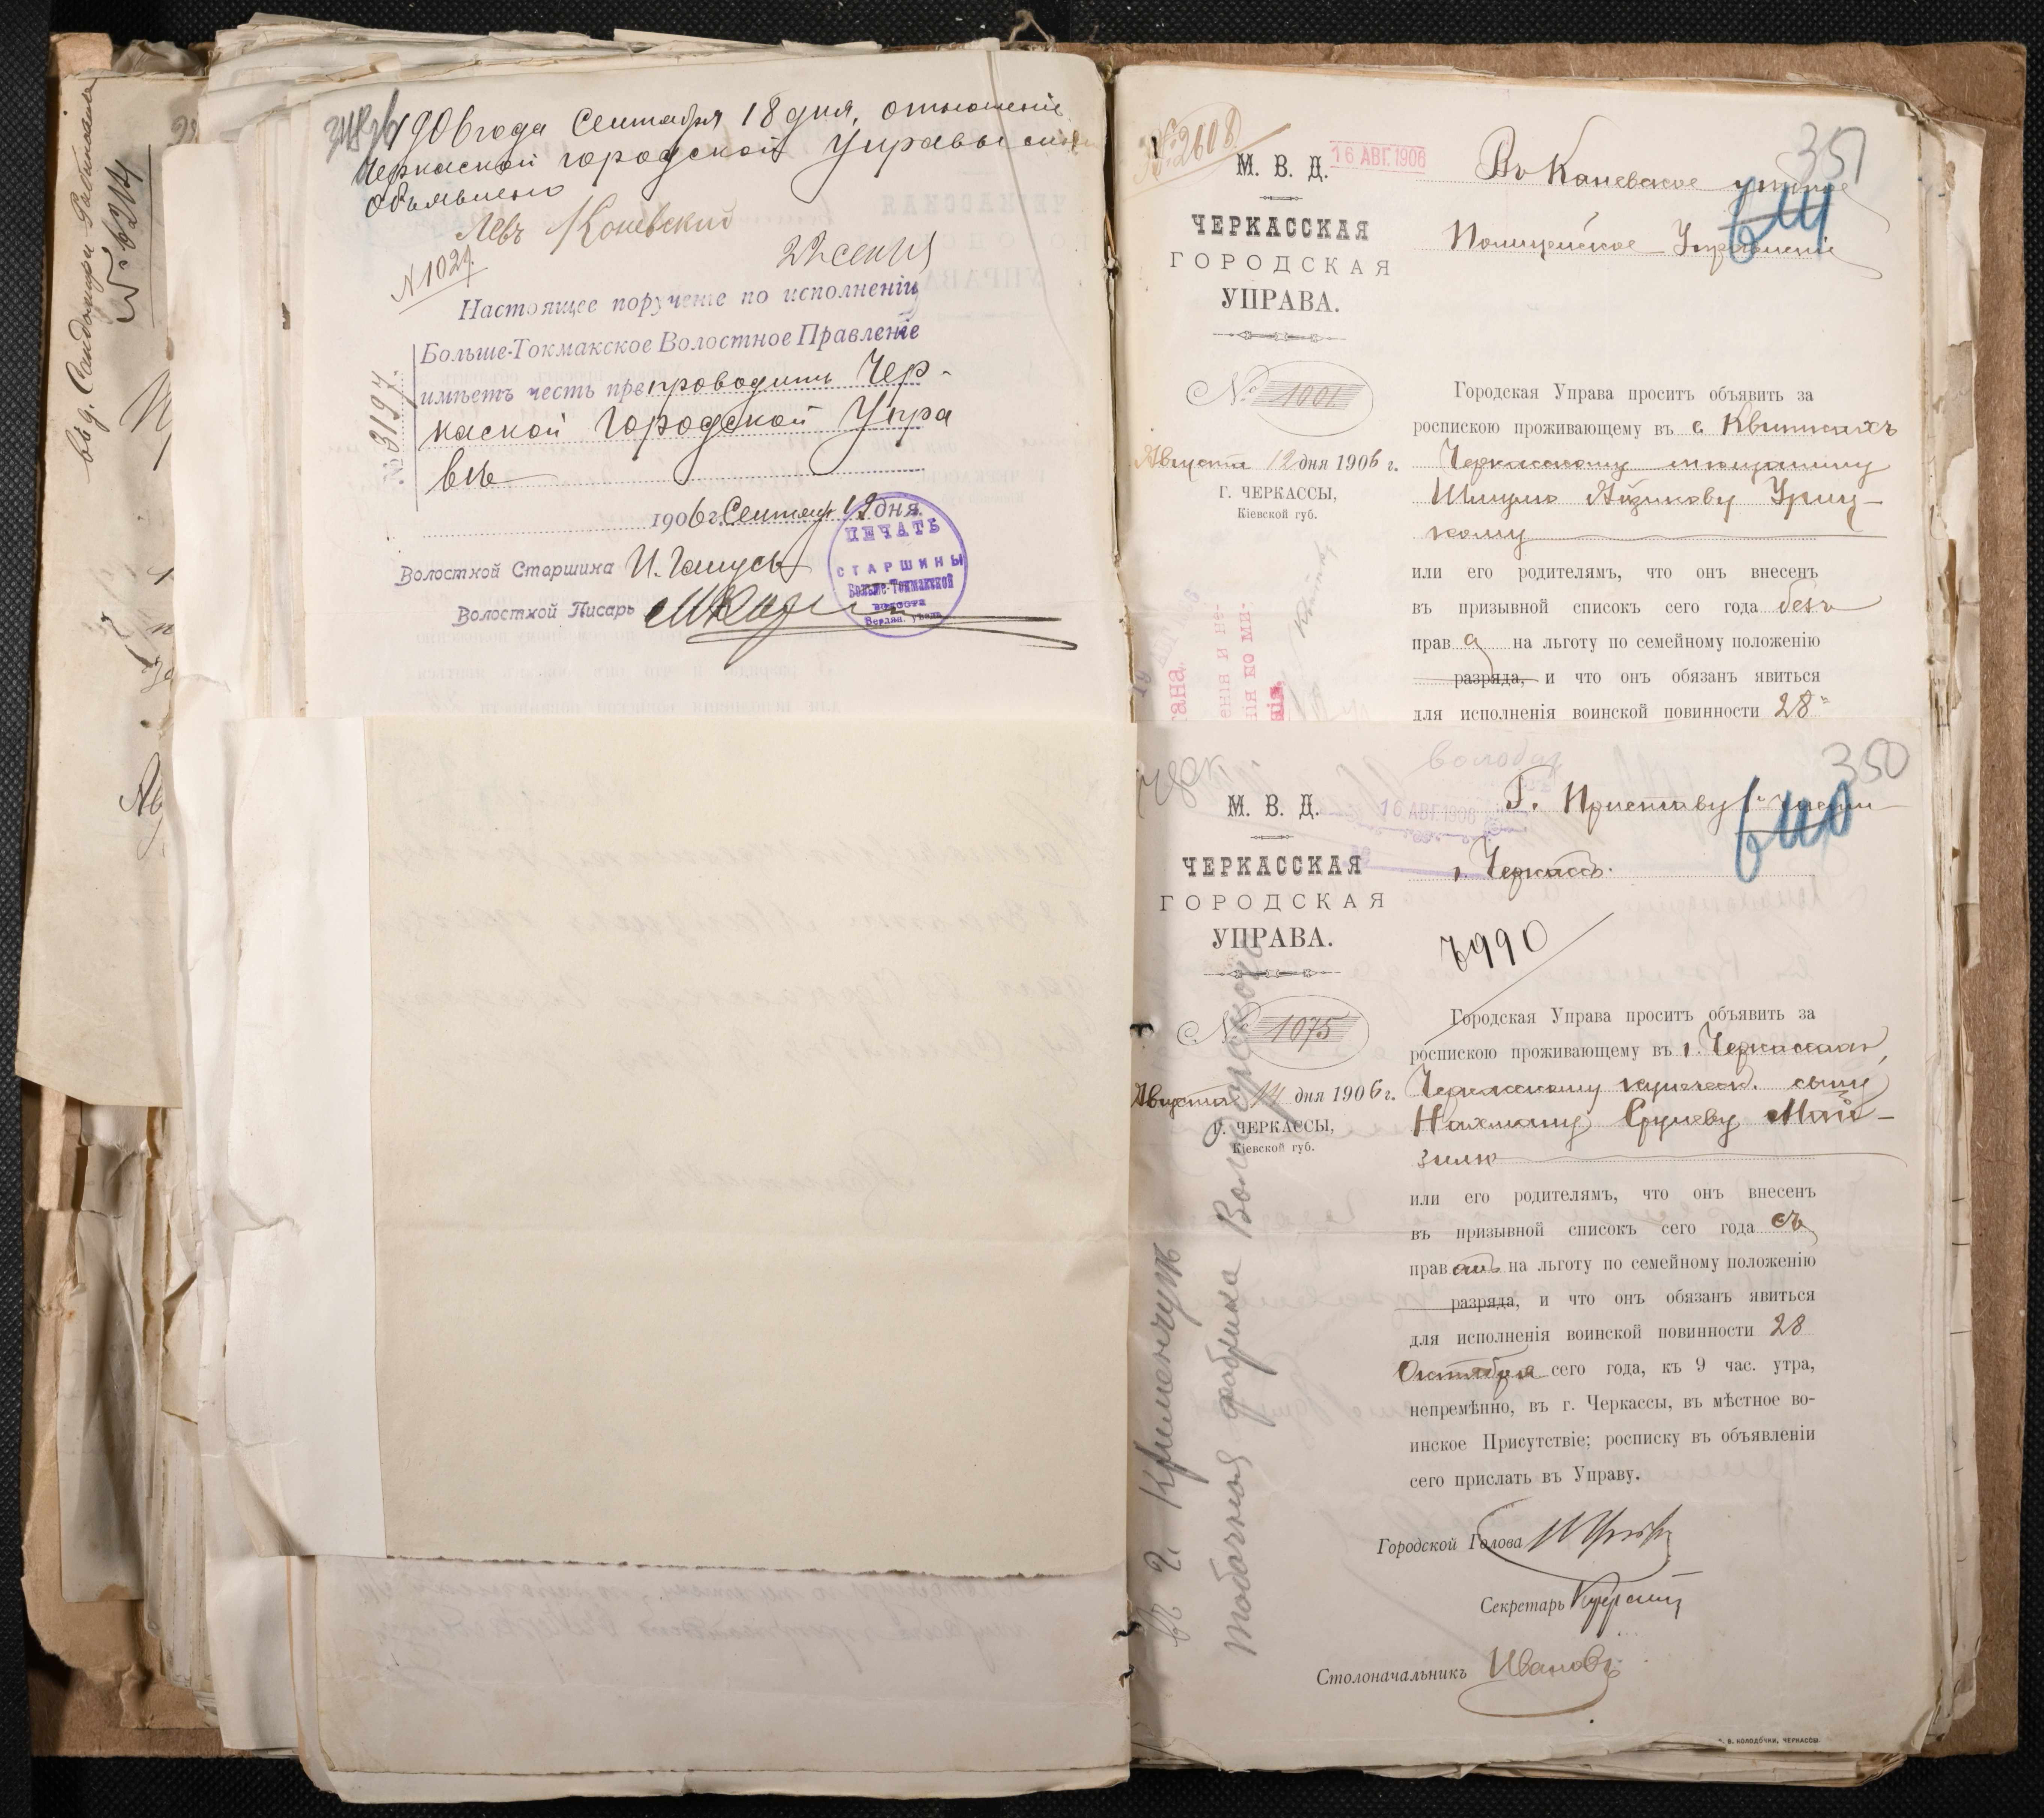 1906 года Сентября 18 дня, отношеніе
Черкаской городской Управы
Объявлено
Левъ Коневский
22 сент
N 1027.
Настоящее порученіе по исполненіи
Больше-Токмакское Волостное Правленіе
имѣетъ честь препроводить Чер-
каской Городской Упра
вѣ
№ 3197.
1906 г. Сентяб 19 дня.
ПЕЧАТЬ
СТАРШИНЫ
Больше-Токмакской
волости
Волостной Старшина
Волостной Писарь
№ 2608
351
М. В. Д.
16 АВГ. 1906
Въ Каневское уѣздное
ЧЕРКАССКАЯ
ГОРОДСКАЯ
УПРАВА.
Полицейское Управленіе
№ 1001
Августа 12 дня 1906 г.
Г. ЧЕРКАССЫ,
Кіевской губ.
Городская Управа проситъ объявить за
роспискою проживающему въ с. Квиткахъ
Черкасскому мѣщанину
Шмулю Айзикову Уриц-
кому
или его родителямъ, что онъ внесенъ
въ призывной списокъ сего года безъ
прав а на льготу по семейному положенію
разряда, и что онъ обязанъ явиться
для исполненія воинской повинности 28
350
М. В. Д.
16 АВГ. 1906
Г. Приставу 1 части
ЧЕРКАССКАЯ
ГОРОДСКАЯ
УПРАВА.
г. Черкассъ.
7990
№ 1075
Августа 14 дня 1906 г.
Г. ЧЕРКАССЫ,
Кіевской губ.
Городская Управа проситъ объявить за
роспискою проживающему въ г. Черкассахъ,
Черкасскому купеческ. сыну
Нахману Сруеву Май-
зилю
или его родителямъ, что онъ внесенъ
въ призывной списокъ сего года съ
прав омъ на льготу по семейному положенію
разряда, и что онъ обязанъ явиться
для исполненія воинской повинности 28
Октября сего года, къ 9 час. утра,
непремѣнно, въ г. Черкассы, въ мѣстное во-
инское Присутствіе; росписку въ объявленіи
сего прислать въ Управу.
Городской Голова
Секретарь
Столоначальникъ Ивановъ
въ г. Кременчугъ
табачная фабрика Володарского